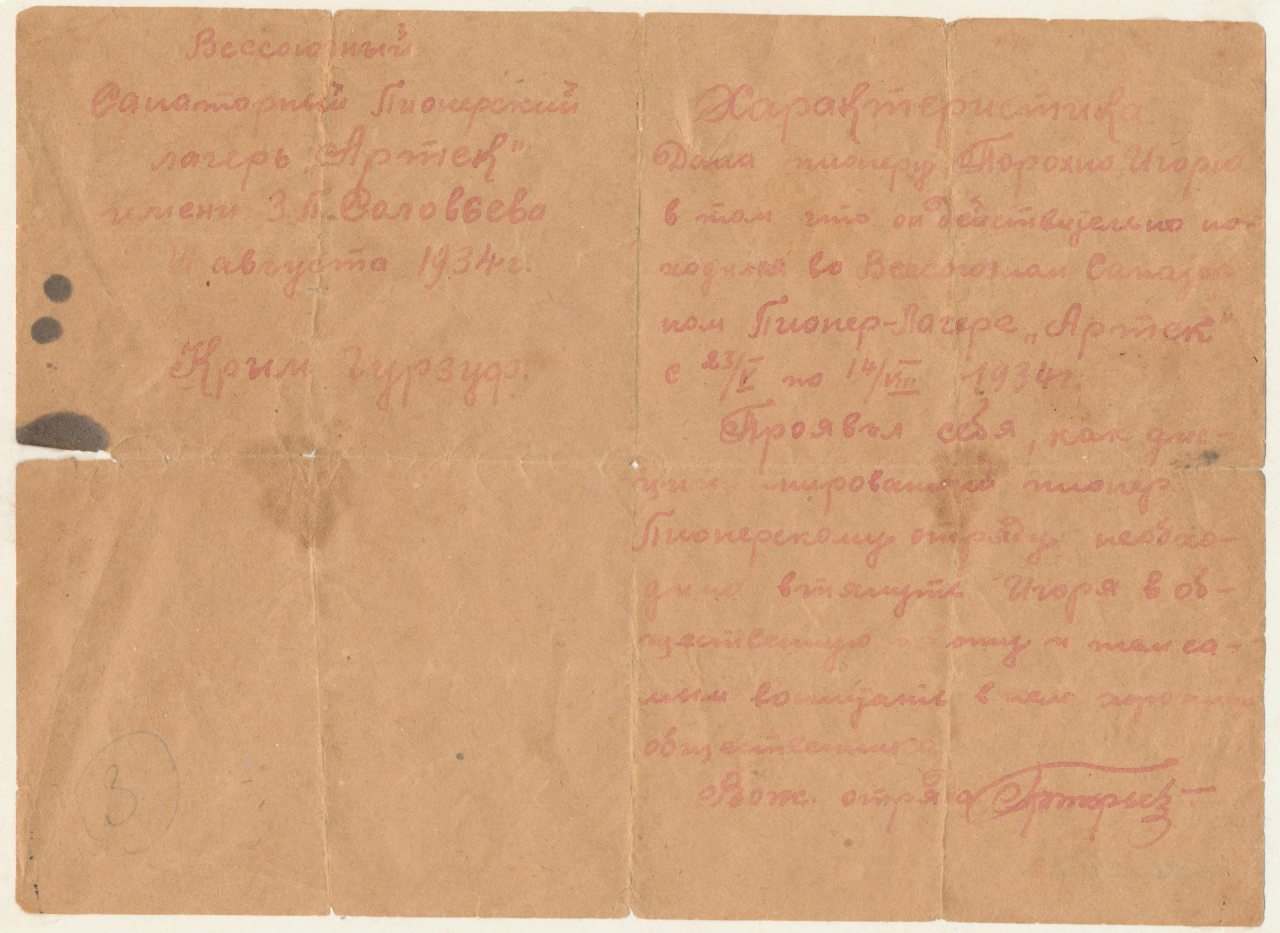 Всесоюзный
Санаторный Пионерский
лагерь „Артек"
имени З.П. Соловьева
14 августа 1934 г.
Крым Гурзуф.
3
Характеристика.
Дана пионеру Порохно Игорю
в том что он действительно на-
ходился во Всесоюзном Санатор
ном Пионер-Лагере „Артек"
с 23/V по 14/VIII 1934 г.
Проявил себя, как дис-
пионер
Пионерскому отряду необхо-
димо втянуть Игоря в об-
щественную работу и тем са-
мым воспитать в нем хорошего
общественника
Вож. отряда